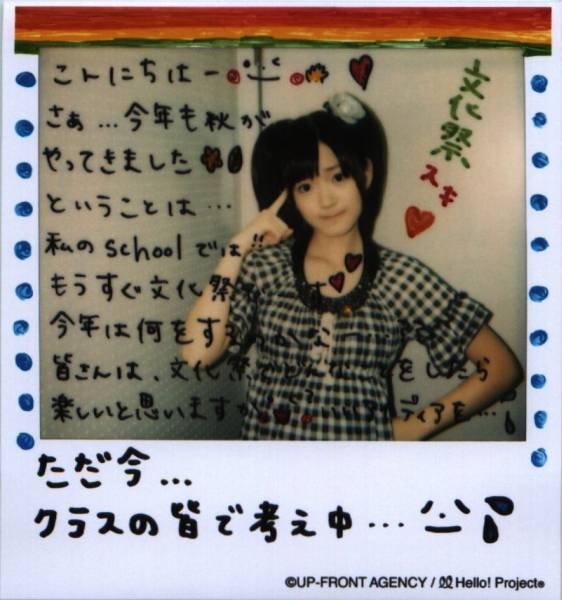 こんにちはー
さぁ…今年も秋が
やってきました
ということは…
私のschoolでは!!
もうすぐ文化祭です
今年は何をするのかな
皆さんは、文化祭でどんなことをしたら
楽しいと思いますか いいアイディアを…
文化祭
スキ
ただ今…
クラスの皆で考え中…
©UP-FRONT AGENCY / Hello! Project®